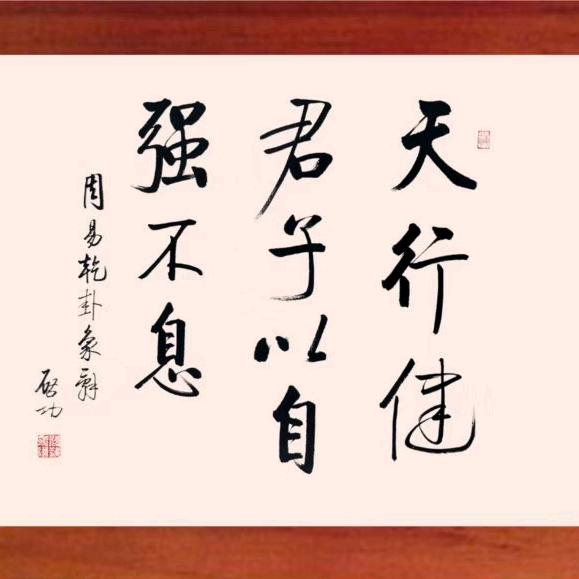 天行健
君子以自
强不息
周易乾卦象辞
启功